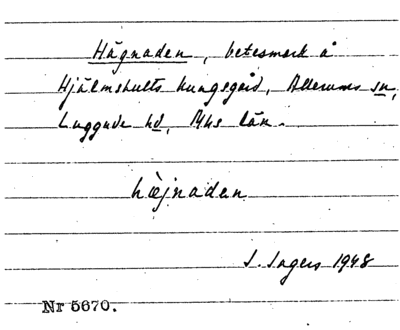 Hägnaden, betesmark å
Hjälmshults kungsgård, Allerums sn,
Luggude hd, Mhs län.
hæjnadan
I. Ingers 1948
Nr 5670.